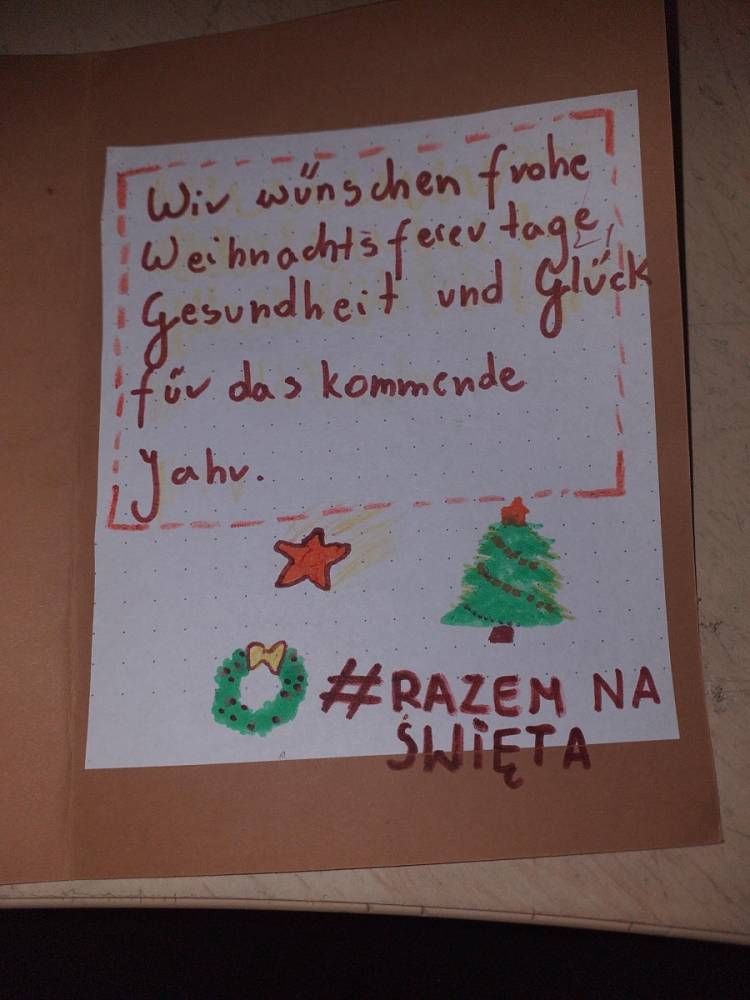 Wir wünschen frohe
Weihnachtsfeiertage,
Gesundheit und Glück
für das kommende
Jahr.
#RAZEM NA
ŚWIĘTA